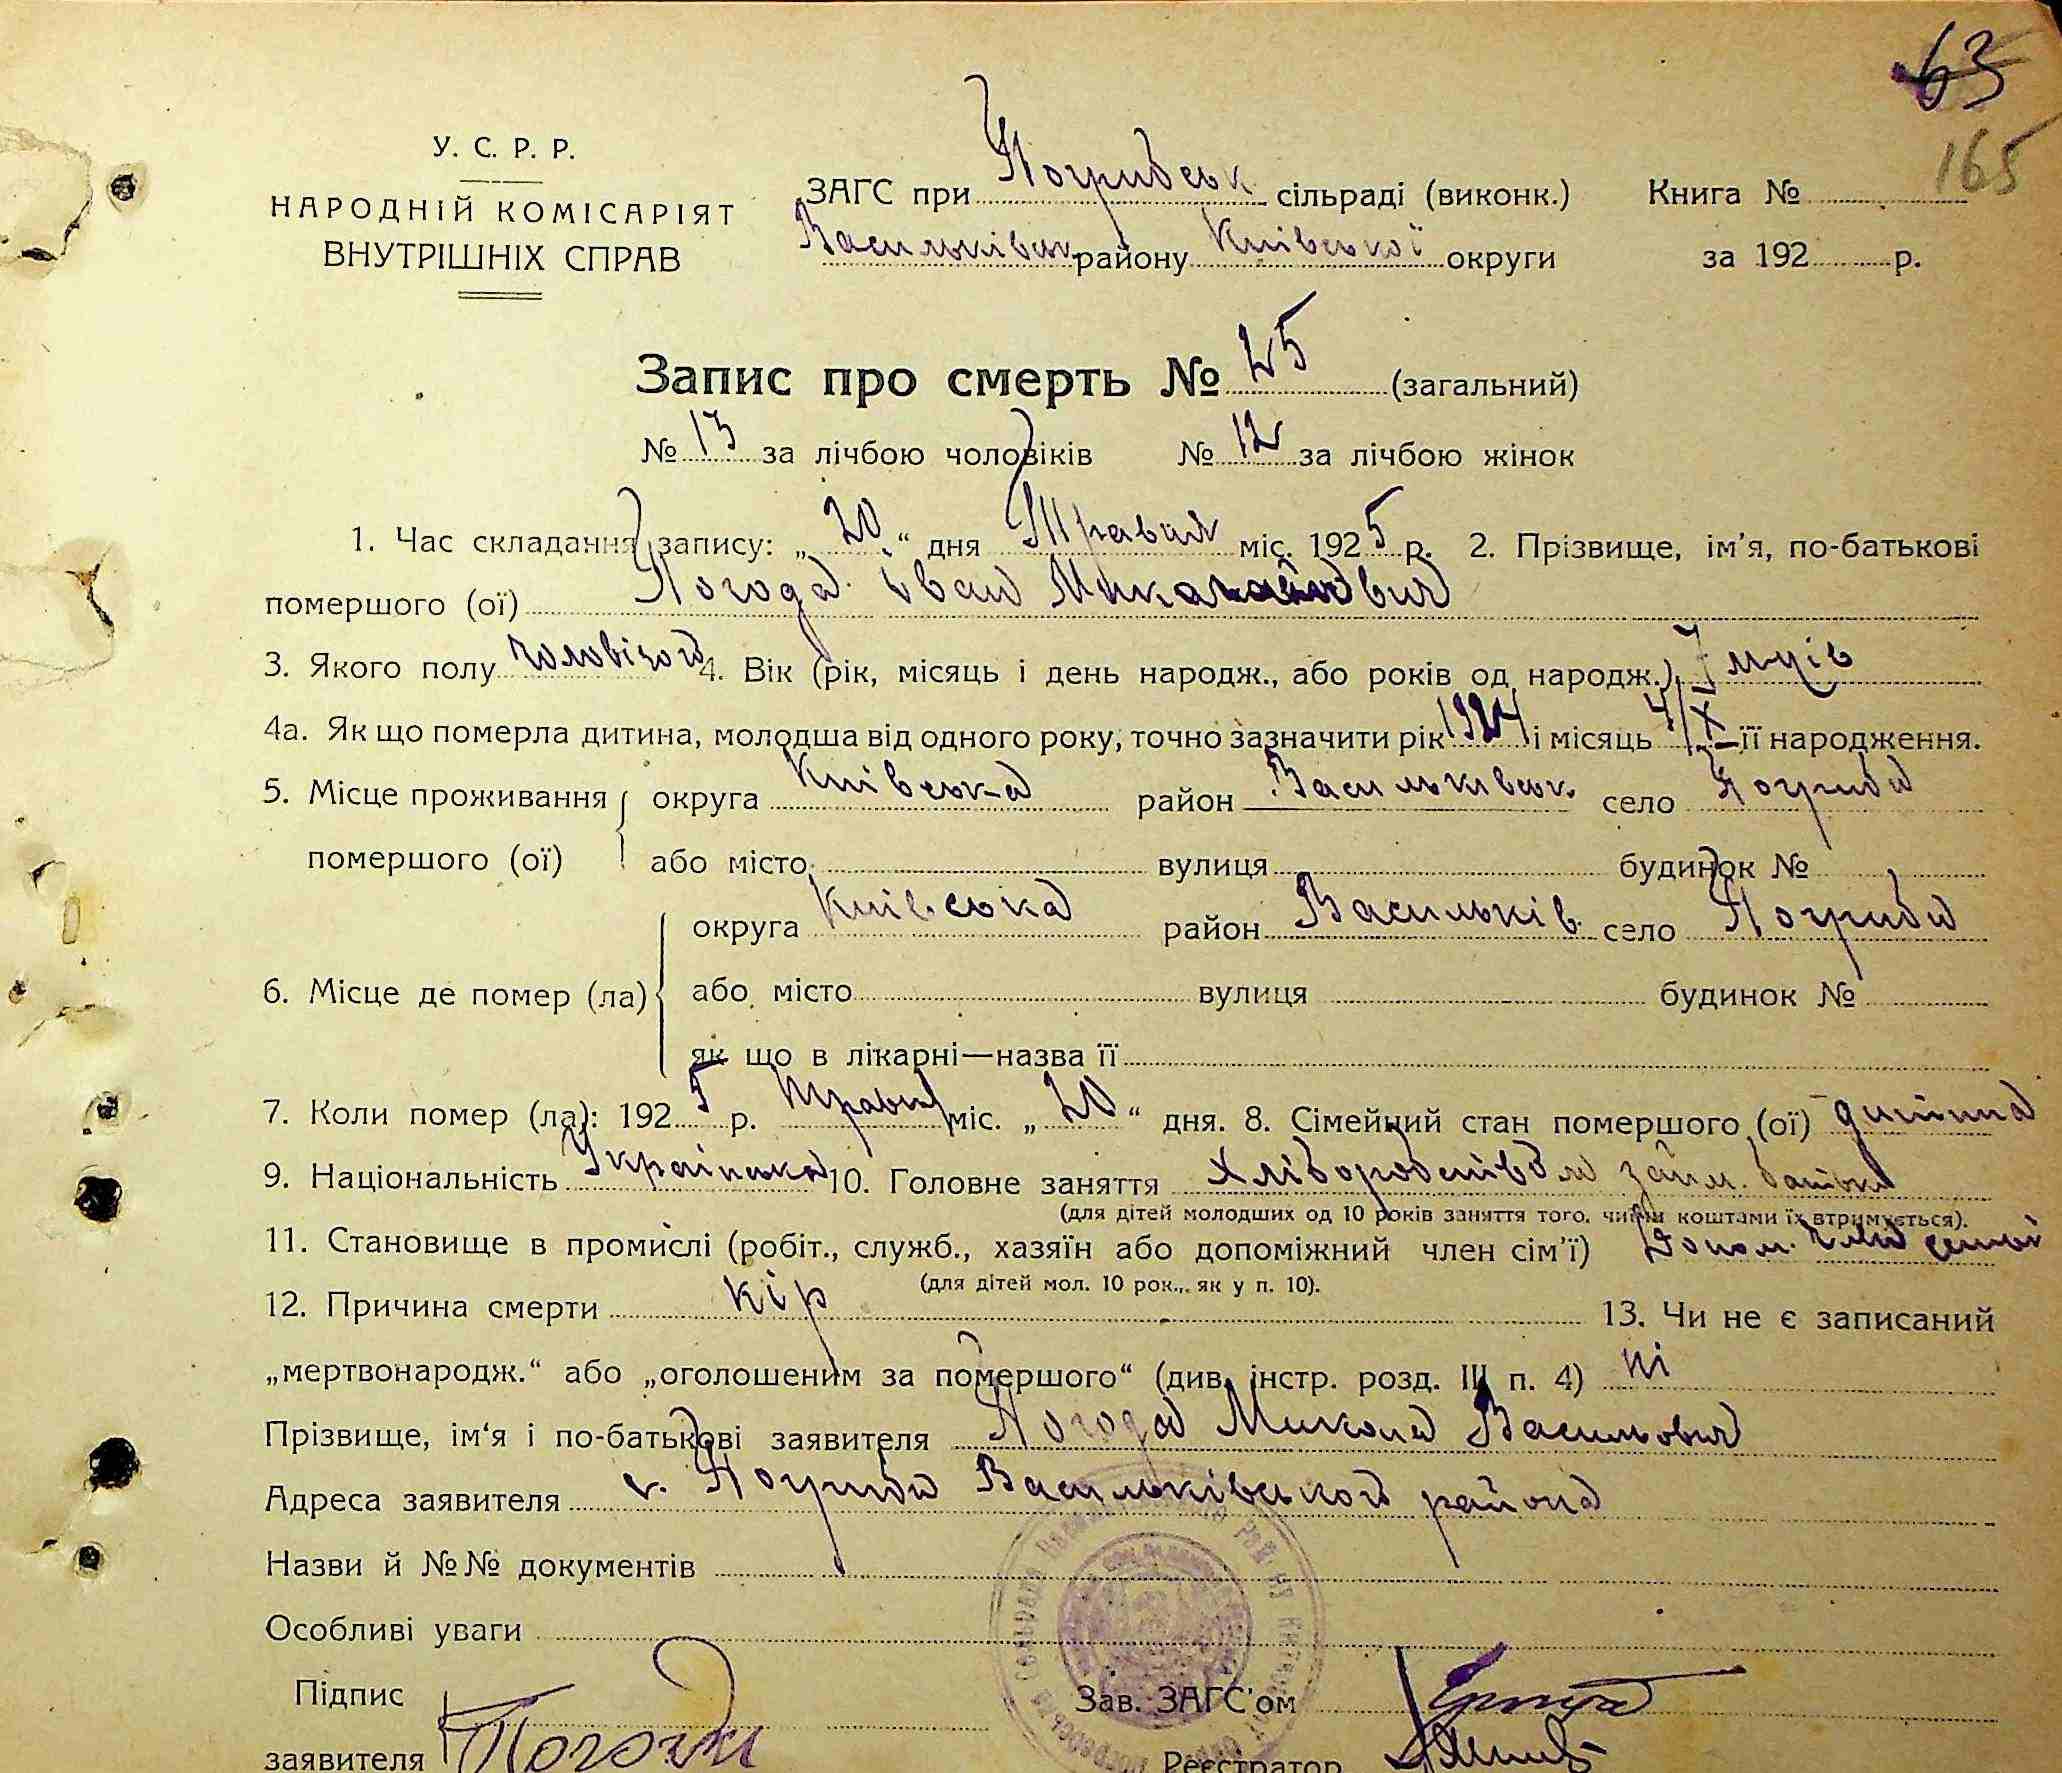 63
165
У. С. Р. Р.
НАРОДНІЙ КОМІСАРІЯТ
ВНУТРІШНІХ СПРАВ
ЗАГС при Погрибськ сільраді (виконк.) Книга №
Васильківськ району Київської округи за 192 р.
Запис про смерть № 25 (загальний)
№ 13 за лічбою чоловіків № 12 за лічбою жінок
1. Час складання запису: „ 20 “ дня Травня міс. 1925 р. 2. Прізвище, ім’я, по-батькові
помершого (ої) Погода Іван Миколайович
3. Якого полу чоловічого 4. Вік (рік, місяць і день народж., або років од народж.) 7 м-ців
4а. Як що померла дитина, молодша від одного року, точно зазначити рік 1924 і місяць 4/X її народження.
5. Місце проживання округа Київська район Васильківськ. село Погриби
помершого (ої) або місто вулиця будинок №
округа Київська район Васильків. село Погриби
6. Місце де помер (ла) або місто вулиця будинок №
як що в лікарні—назва її
7. Коли помер (ла): 1925 р. Травня міс. „ 20 “ дня. 8. Сімейний стан помершого (ої) дитина
9. Національність Українська 10. Головне заняття Хліборобством займ. батьки
(для дітей молодших од 10 років заняття того, чиїми коштами їх втримується).
11. Становище в промислі (робіт., служб., хазяїн або допоміжний член сім’ї) Допом. член семьї
(для дітей мол. 10 рок., як у п. 10).
12. Причина смерти кір 13. Чи не є записаний
„мертвонародж.“ або „оголошеним за помершого“ (див. інстр. розд. III п. 4) ні
Прізвище, ім‘я і по-батькові заявителя Погода Микола Васильович
Адреса заявителя с. Погриби Васильківського района
Назви й №№ документів
Особливі уваги
Підпис Зав. ЗАГС’ом
заявителя Погода Реєстратор